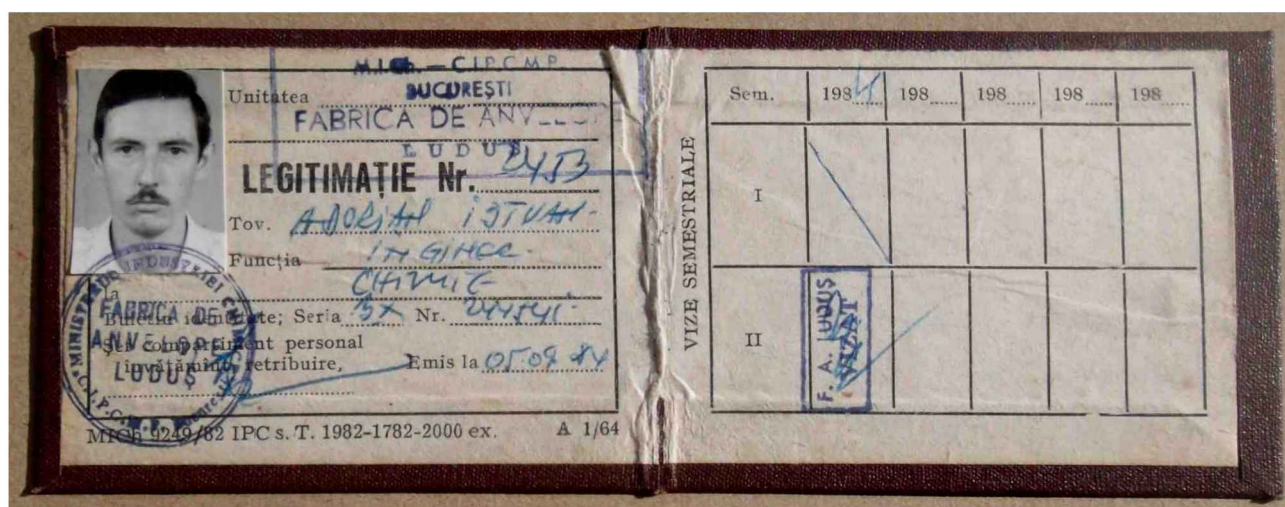 M.I.Ch. — C.I.P.C.M.P.
BUCUREȘTI
Unitatea
FABRICA DE
LUDUȘ
LEGITIMAȚIE Nr. 2453
Tov. ADORJAN ISTVAN
Funcția INGINER
CHIMIE
la
Buletin identitate; Seria BX Nr.
Șef compartiment personal
învățămînt, retribuire,
Emis la 05.09 84
MINISTERUL INDUSTRIEI
FABRICA DE
ANVELOPE
LUDUȘ
C.I.P.C.M.P.
MICh 9249/82 IPC s. T. 1982-1782-2000 ex. A 1/64
VIZE SEMESTRIALE
Sem. 1984 198 198 198 198
I
II
F. A. LUDUȘ
VIZAT